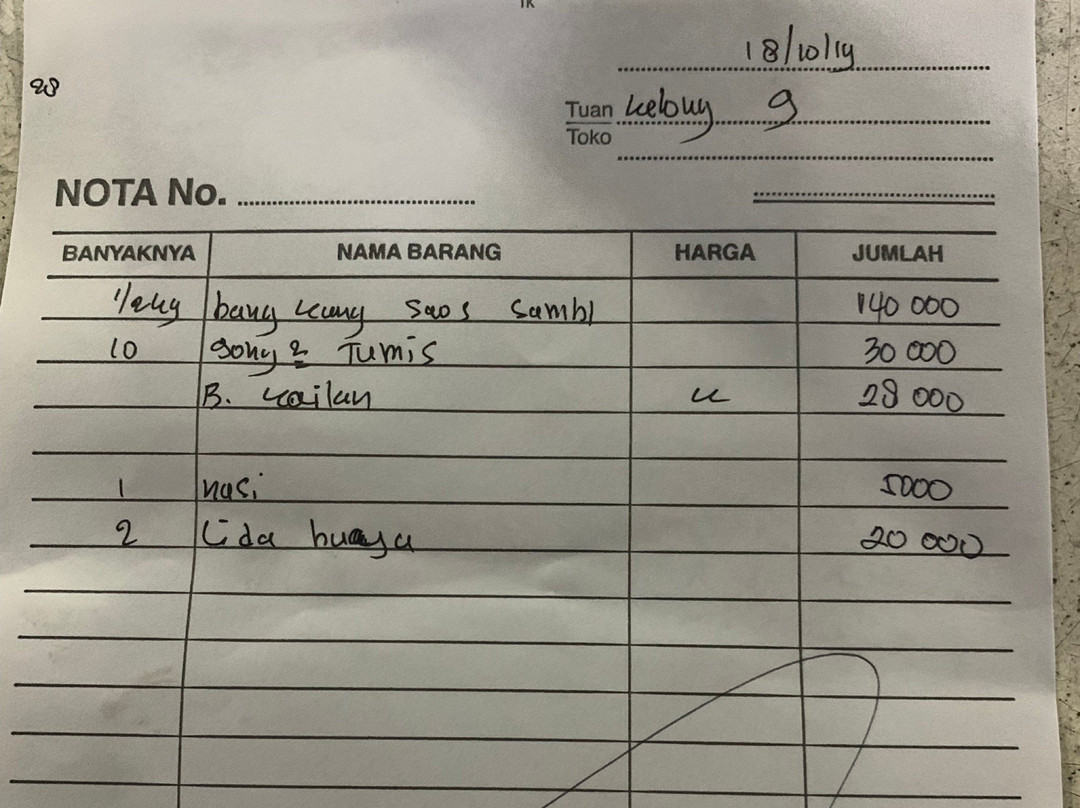 18/10/19
98
Tuan kelong 9
Toko
NOTA No.
BANYAKNYA NAMA BARANG HARGA JUMLAH
1/2kg bang kang saos sambl 140 000
10 gong2 Tumis 30 000
B. kailan K 28 000
1 nasi 5000
2 Lida buaya 20 000